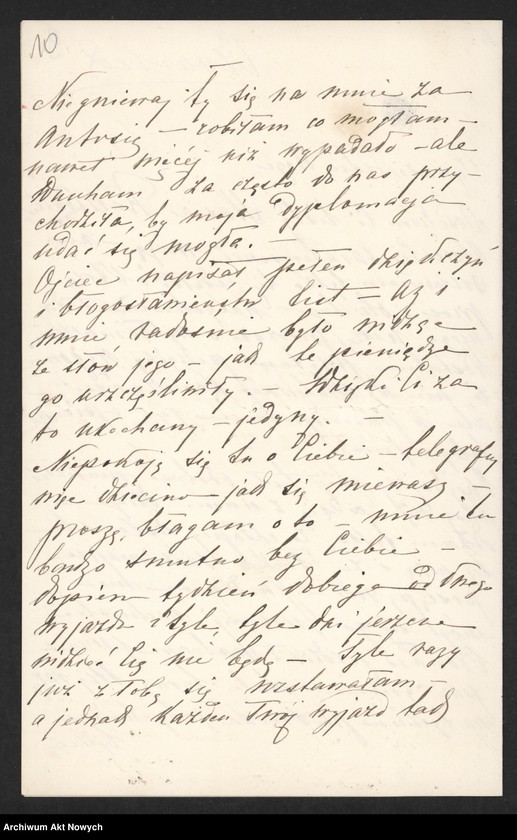 10
Nie gniewaj ty się na mnie za
Antosię – robiłam co mogłam –
nawet więcéj niż wypadało – ale
za często do nas przy-
chodziła, by moja dyplomacja
udać się mogła. –
Ojciec napisał pełen dziękczyń
i błogosławieństw list – aż i
mnie radośnie było widząc
ze słów jego – jak te pieniądze
go uszczęśliwiły. – Dzięki Ci za
to ukochany – jedyny. –
Niepokoję się tu o Ciebie – telegrafuj
więc dziecino – jak się miewasz –
proszę, błagam o to – mnie tu
bardzo smutno bez Ciebie –
dopiero tydzień dobiega od Twego
wyjazdu i tyle, tyle dni jeszcze
widzieć Cię nie będę – Tyle razy
już z Tobą się rozstawałam –
a jednak każden Twój wyjazd tak
Archiwum Akt Nowych